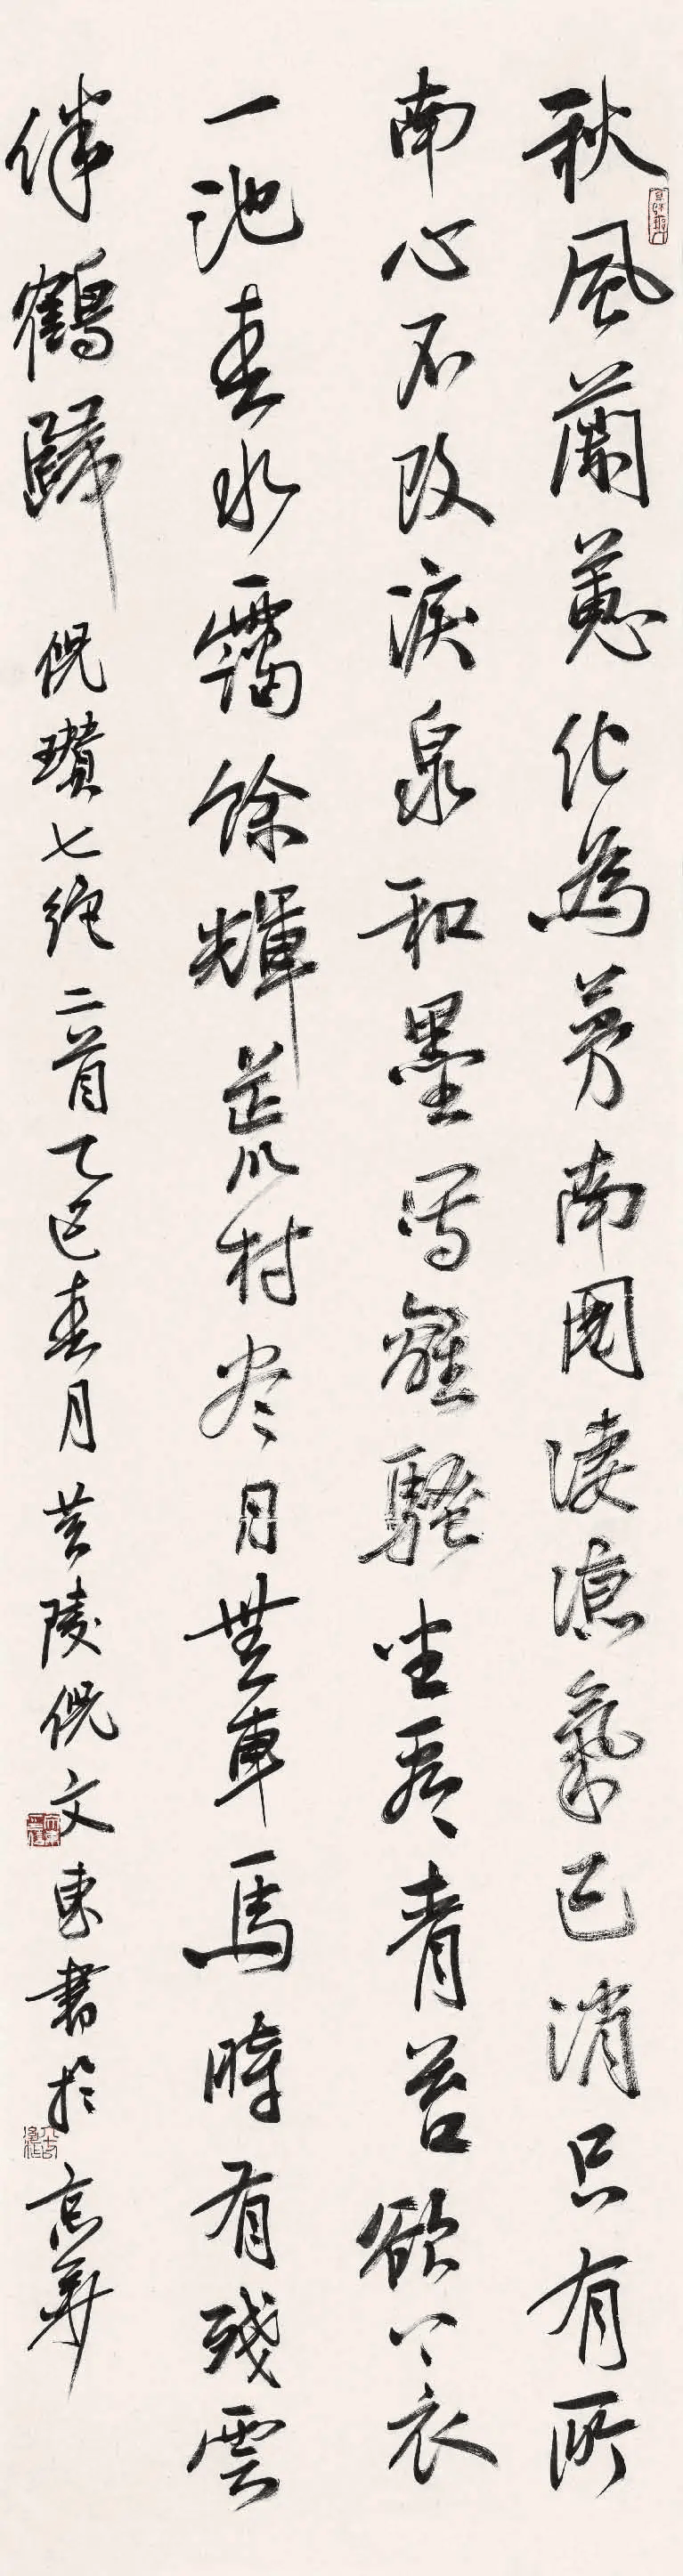 秋風蘭蕙化為茅南國淒涼氣已消只有所
南心不改淚泉和墨寫離騷坐看青苔欲上衣
一池春水靄餘輝荒村尽日無車馬時有殘雲
伴鶴歸 倪瓚七絕二首乙巳春月黄陵倪文東書於京華